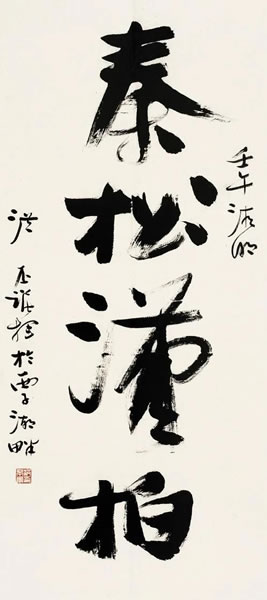 壬午清明
秦松漢柏
洪丕謨於湖畔